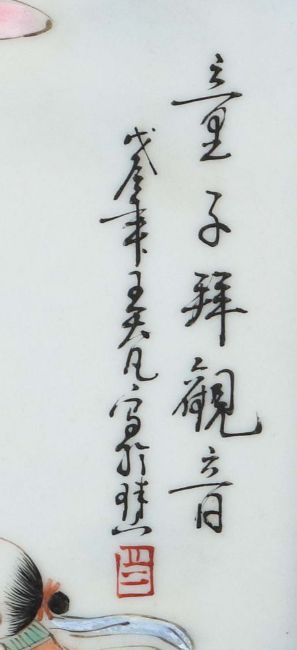 童子拜觀音
戊冬年王大凡寫於珠山